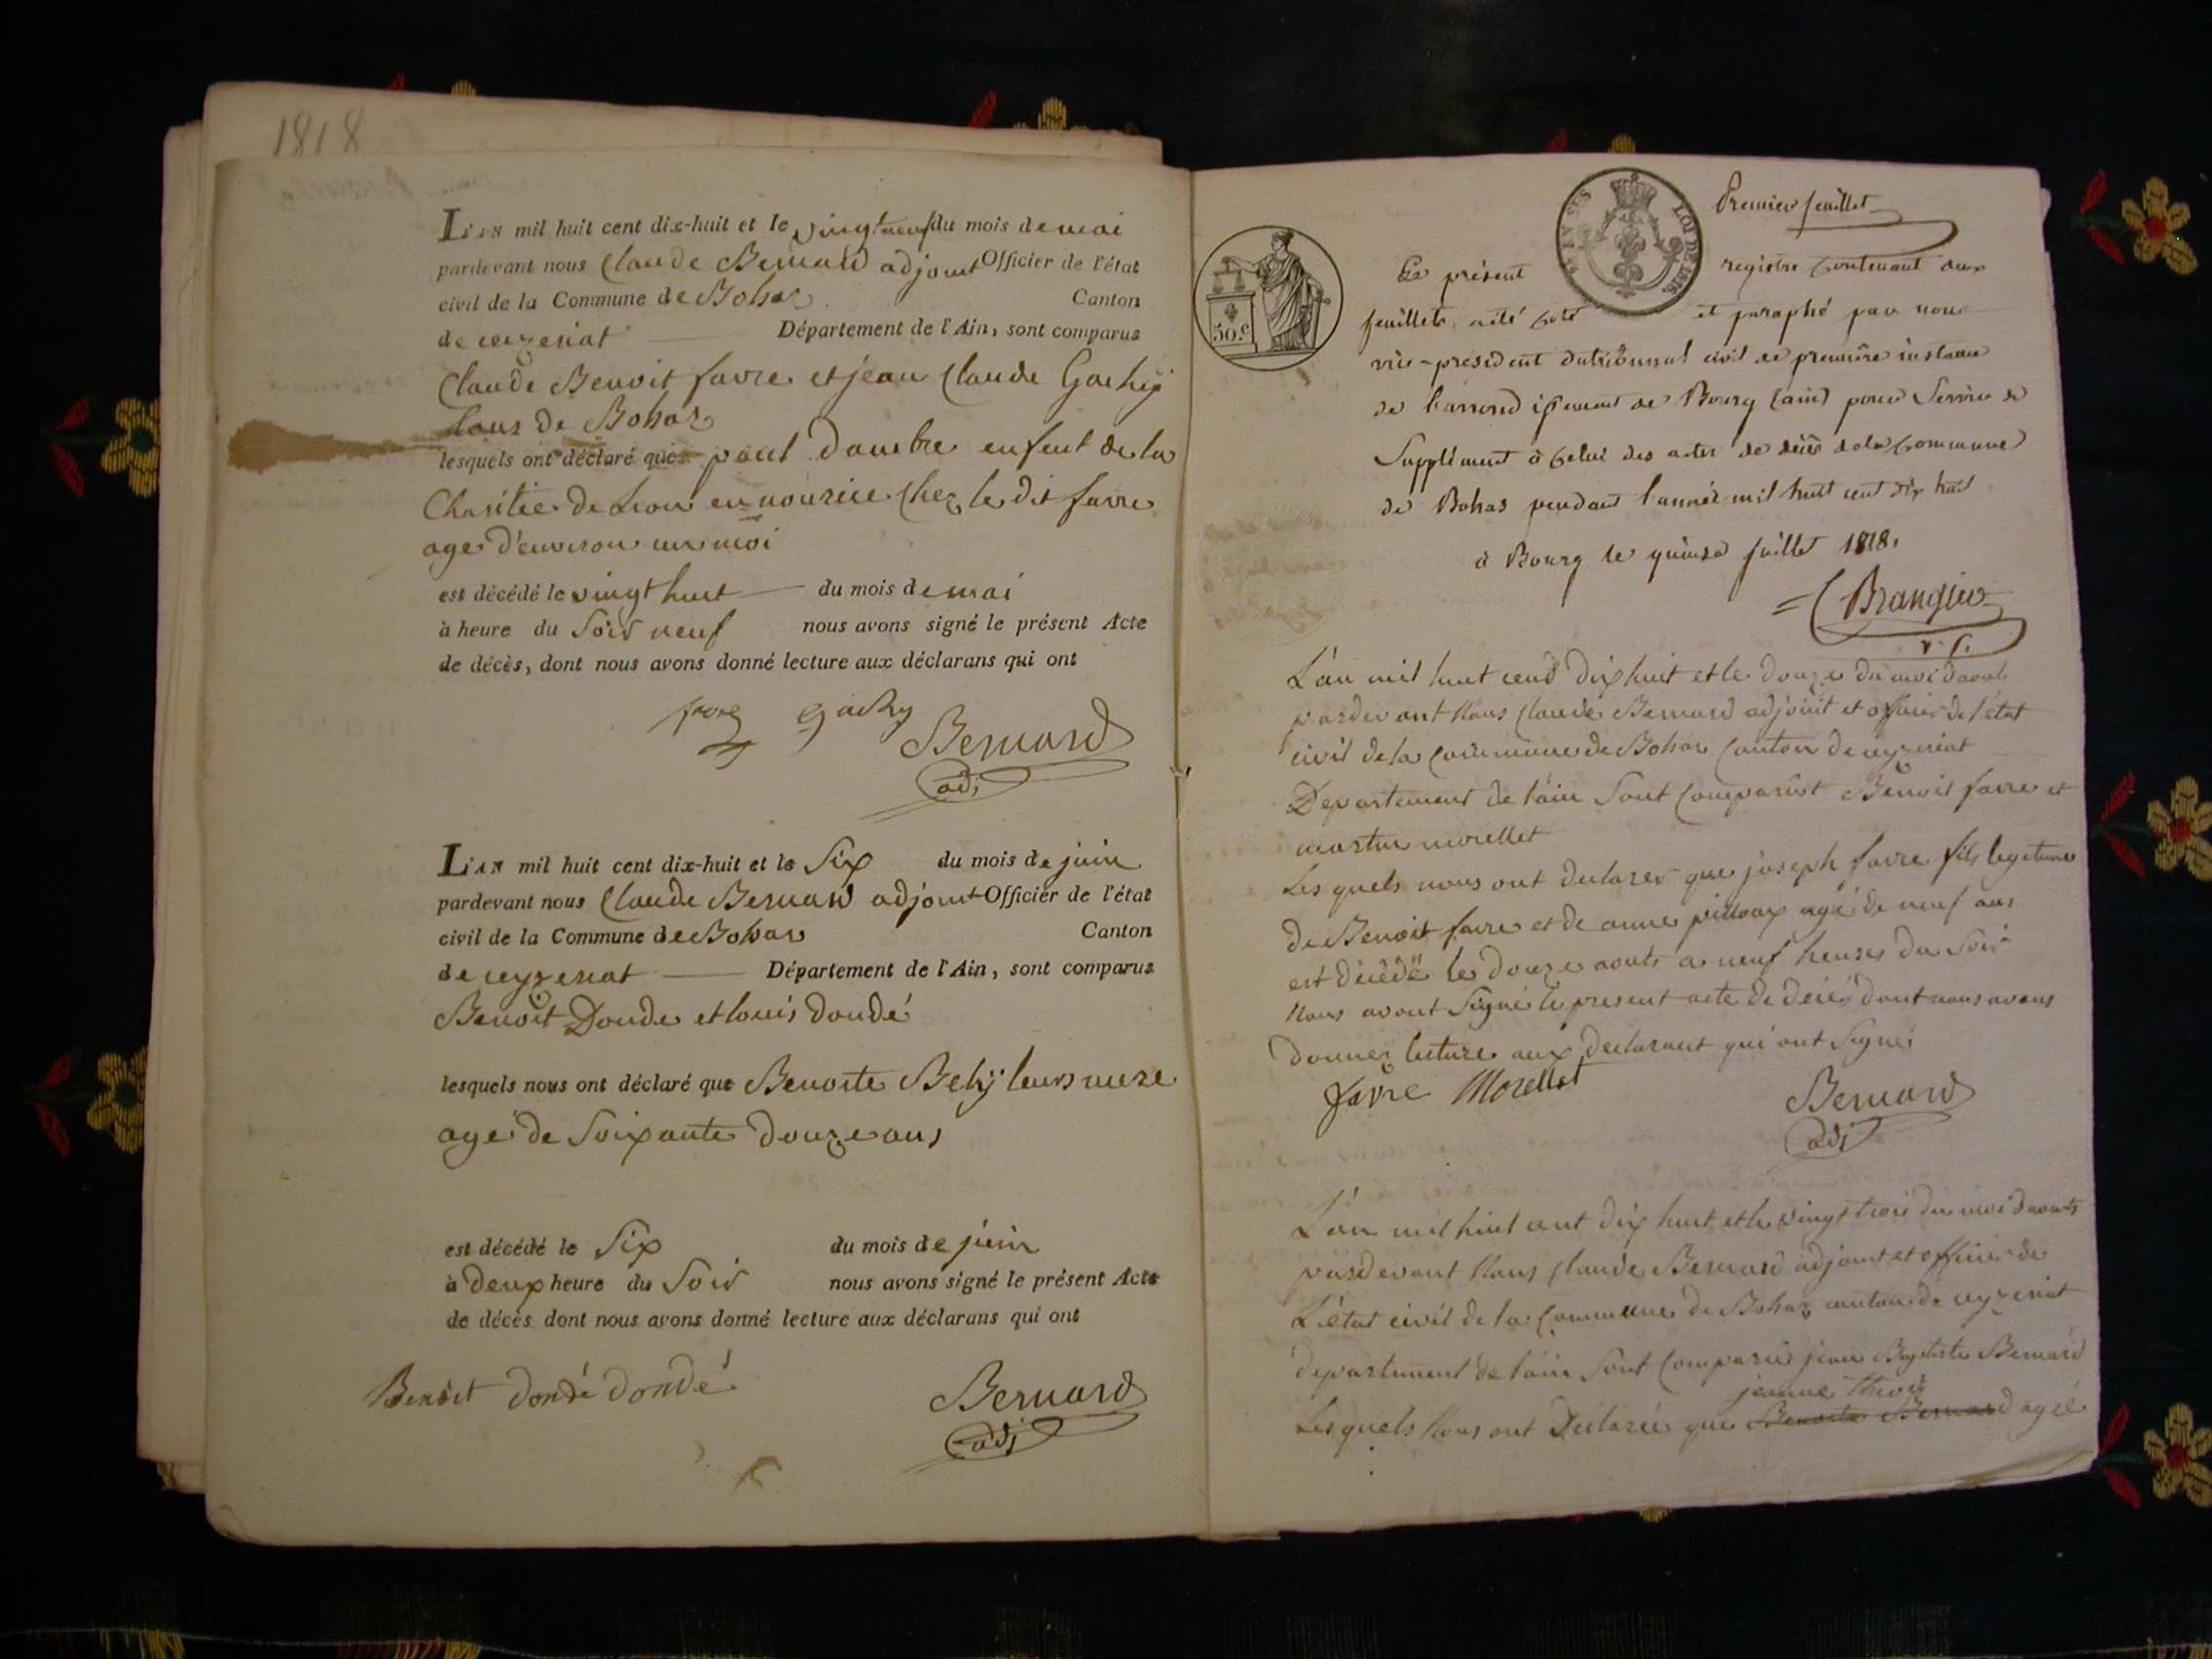 1818
L'AN mil huit cent dix-huit et le vingt neuf du mois de mai
pardevant nous Claude Bernard adjoint Officier de l'état
civil de la Commune de Bohas Canton
de ceyzeriat Département de l'Ain, sont comparus
Claude Benoit favre et jean Claude Gachy
tous de Bohas
lesquels ont déclaré que paul dambre enfent de la
Charitie de Lion en nourice chez le dit favre
age d'environ un moi
est décédé le vingt huit du mois de mai
à heure du Soir neuf nous avons signé le présent Acte
de décès, dont nous avons donné lecture aux déclarans qui ont
favre gachy
Bernard
adj
L'AN mil huit cent dix-huit et le Six du mois de juin
pardevant nous Claude Bernard adjoint Officier de l'état
civil de la Commune de Bohas Canton
de ceyzeriat Département de l'Ain, sont comparus
Benoit Donde et louis dondé
lesquels nous ont déclaré que Benoite Behy leurs mere
age de Soixante douze ans
est décédé le Six du mois de juin
à deux heure du Soir nous avons signé le présent Acte
de décès dont nous avons donné lecture aux déclarans qui ont
Benoit dondé dondé
Bernard
adj
LOI DE 1816
Premier feuillet
50.c
Le présent registre contenant deux
feuillets, a été coté et paraphé par nous
vice-president du tribunal civil de première instance
de l'arrondissement de Bourg (ain) pour Servir de
Supplément à celui des actes de décès de la Commune
de Bohas pendant l'année mil huit cent dix huit
à Bourg le quinze juillet 1818.
Brangier
v. p.
L'an mil huit cend dix huit et le douze du moi daouts
pardevant Nous Claude Bernard adjoint et officier de l'état
civil de la Commune de Bohas Canton de ceyzeriat
Departement de l'ain Sont Comparust Benoit favre et
martin morellet
Les quels nous ont declarer que joseph favre fils legitime
de Benoit favre et de anne pilloux agé de neuf ans
est décédé le douze aouts a neuf heures du Soir
Nous avont Signé le present acte de décés dont nous avons
donner lecture aux declarant qui ont Signé
favre Morellet
Bernard
adj
L'an mil huit cent dix huit et le vingt trois du moi daouts
pardevant Nous Claude Bernard adjoint et officier de
L'état civil de la Commune de Bohas canton de ceyzeriat
departement de l'ain Sont Comparus jean Baptiste Bernard
jeanne
Les quels Nous ont Declarée que Benoite Bernard agée